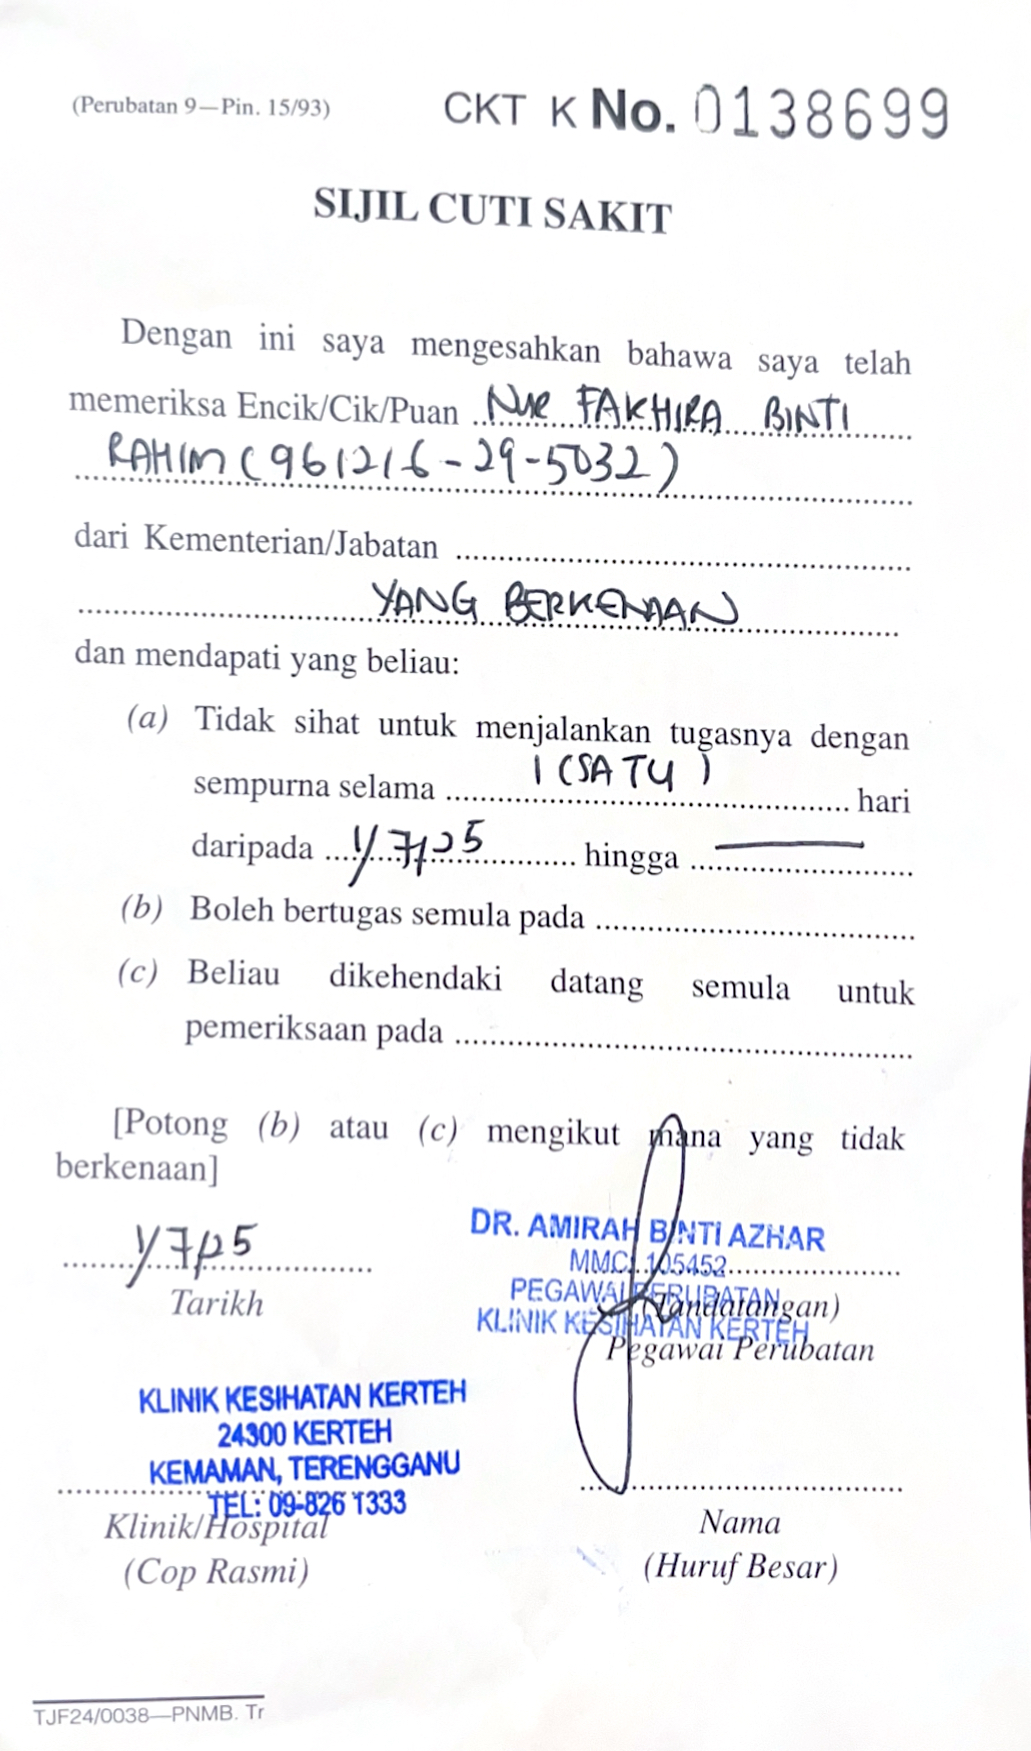 (Perubatan 9—Pin. 15/93)
CKT K No. 0138699
SIJIL CUTI SAKIT
Dengan ini saya mengesahkan bahawa saya telah
memeriksa Encik/Cik/Puan NUR FAKHIRA BINTI
RAHIM (961216-29-5032)
dari Kementerian/Jabatan
YANG BERKENAAN
dan mendapati yang beliau:
(a) Tidak sihat untuk menjalankan tugasnya dengan
sempurna selama 1 (SATU) hari
daripada 1/7/25 hingga
(b) Boleh bertugas semula pada
(c) Beliau dikehendaki datang semula untuk
pemeriksaan pada
[Potong (b) atau (c) mengikut mana yang tidak
berkenaan]
1/7/25
Tarikh
DR. AMIRAH BINTI AZHAR
MMC: 105452
PEGAWAI PERUBATAN
KLINIK KESIHATAN KERTEH
(Tandatangan)
Pegawai Perubatan
KLINIK KESIHATAN KERTEH
24300 KERTEH
KEMAMAN, TERENGGANU
TEL: 09-826 1333
Klinik/Hospital
(Cop Rasmi)
Nama
(Huruf Besar)
TJF24/0038—PNMB. Tr